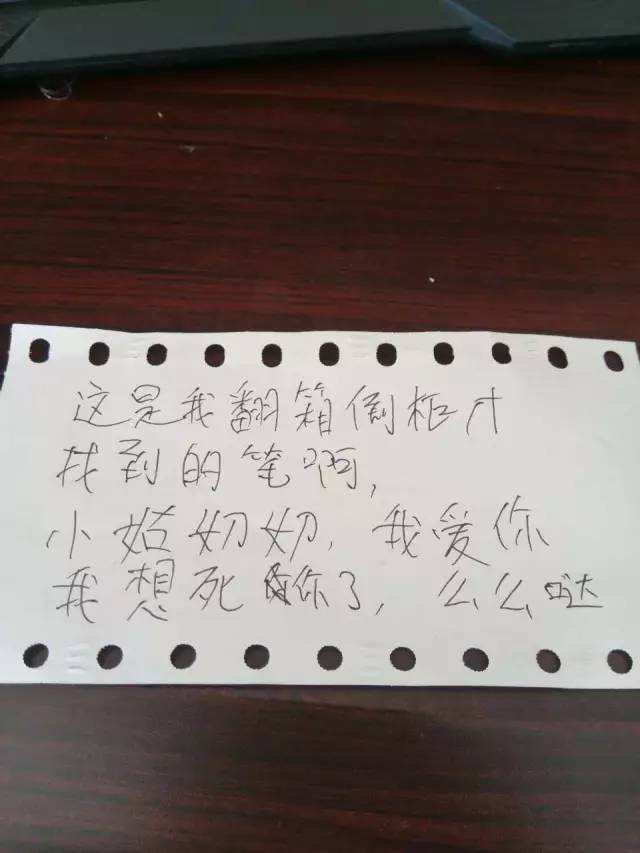 这是我翻箱倒柜才
找到的笔啊,
小姑奶奶,我爱你
我想死你了,么么哒